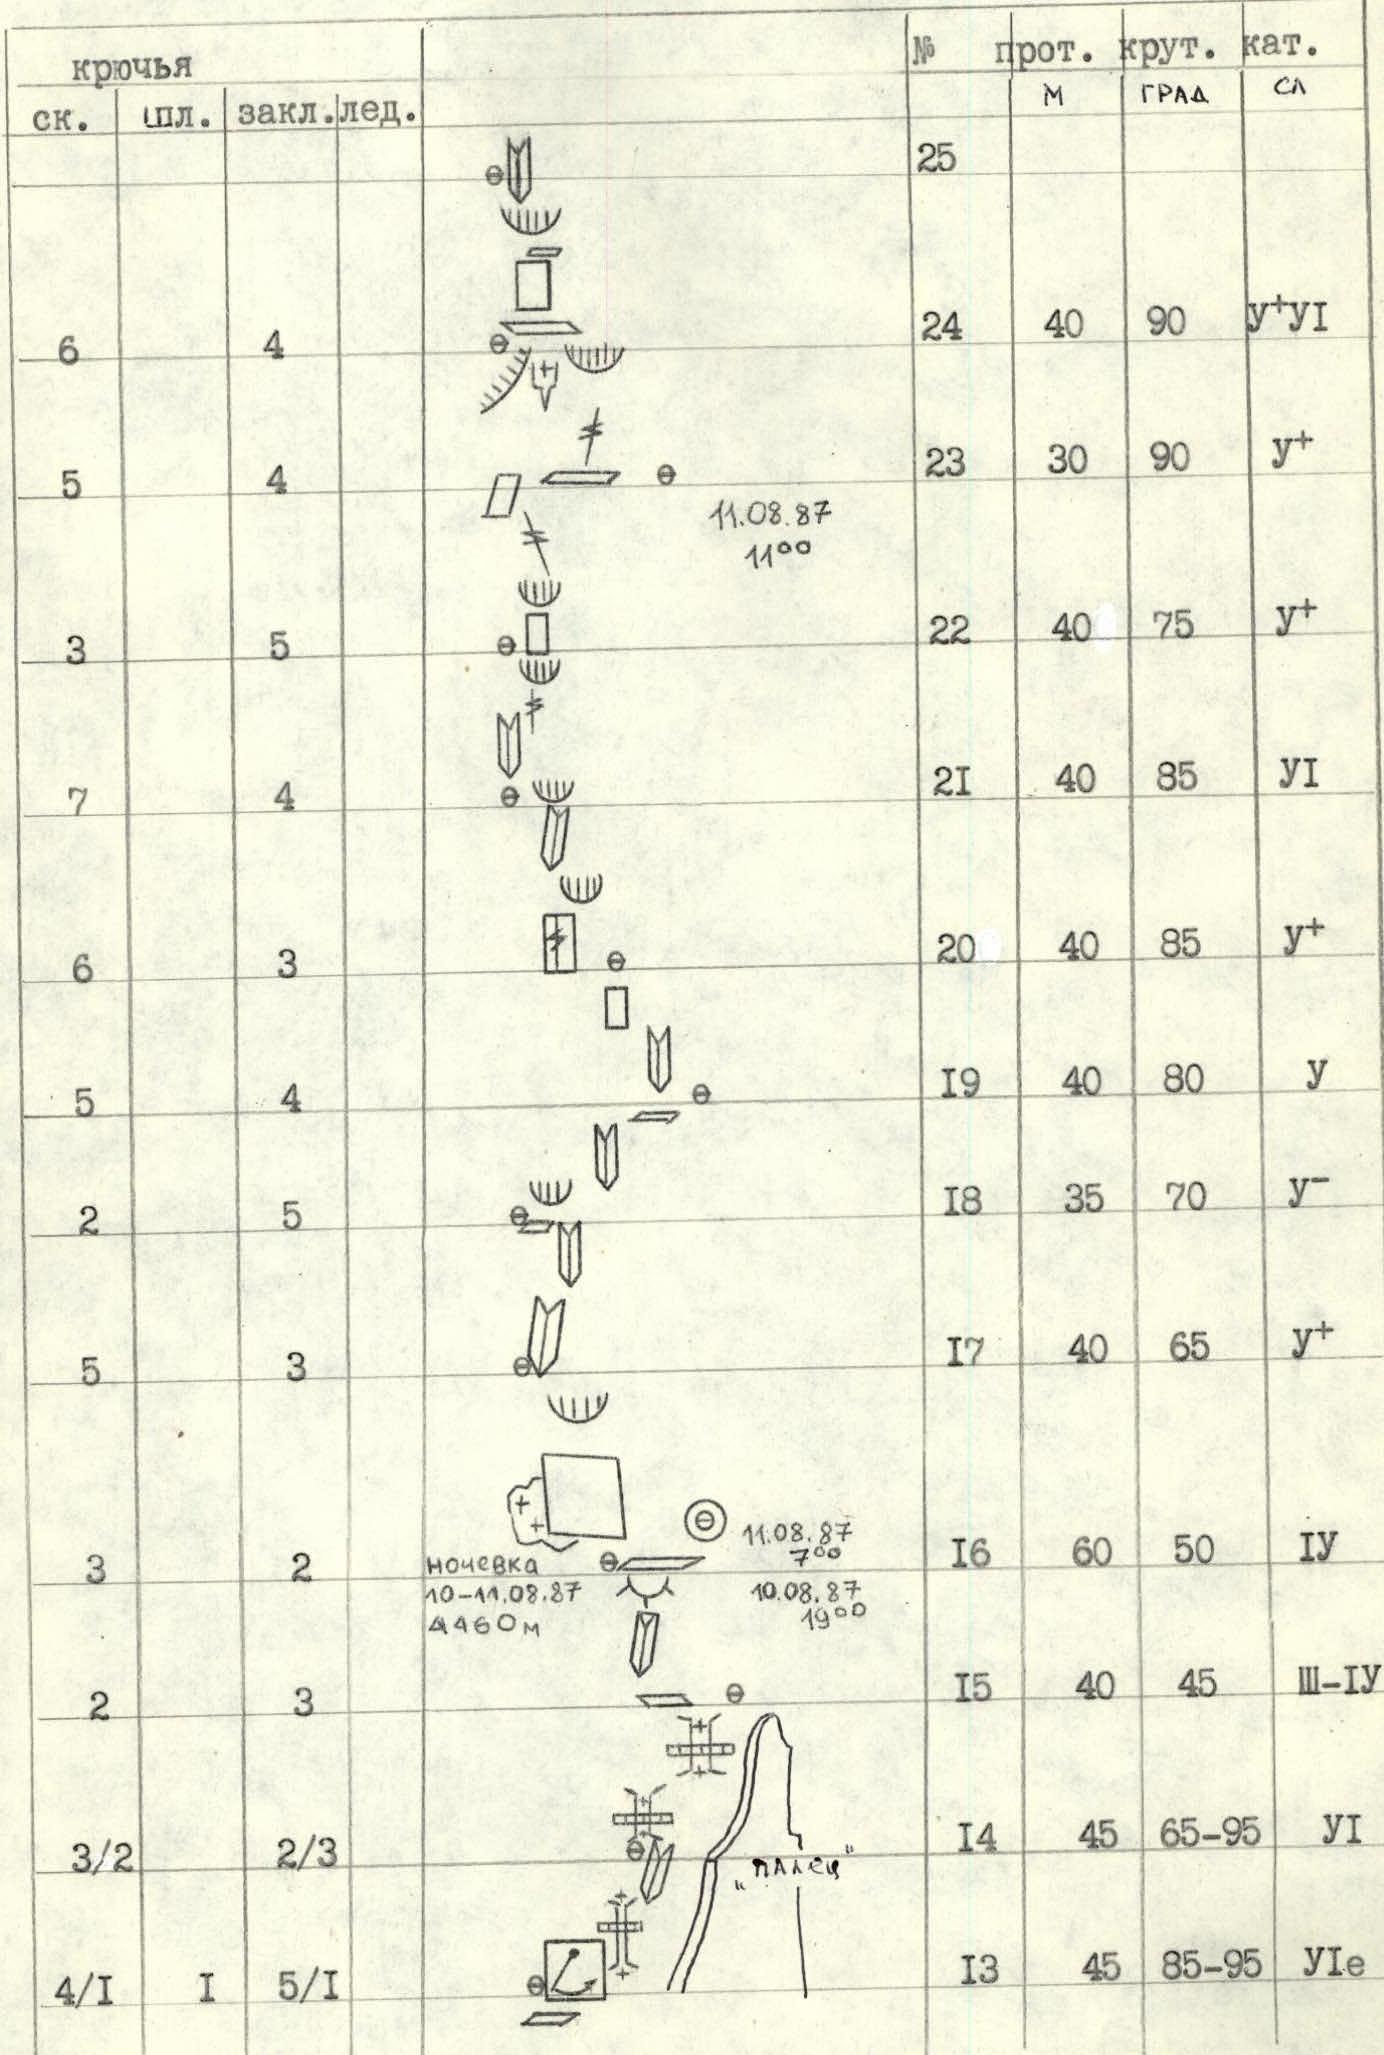 крючья № прот. крут. кат.
ск. шл. закл. лед. М ГРАД СЛ
25
6 4 24 40 90 У+УI
5 4 23 30 90 У+
11.08.87
11⁰⁰
3 5 22 40 75 У+
7 4 2I 40 85 УI
6 3 20 40 85 У+
5 4 I9 40 80 У
2 5 I8 35 70 У-
5 3 I7 40 65 У+
11.08.87
7⁰⁰
3 2 I6 60 50 IУ
ночевка
10-11.08.87
4460м
10.08.87
19⁰⁰
2 3 I5 40 45 Ш-IУ
3/2 2/3 I4 45 65-95 УI
„ПАЛЕЦ"
4/I I 5/I I3 45 85-95 УIе